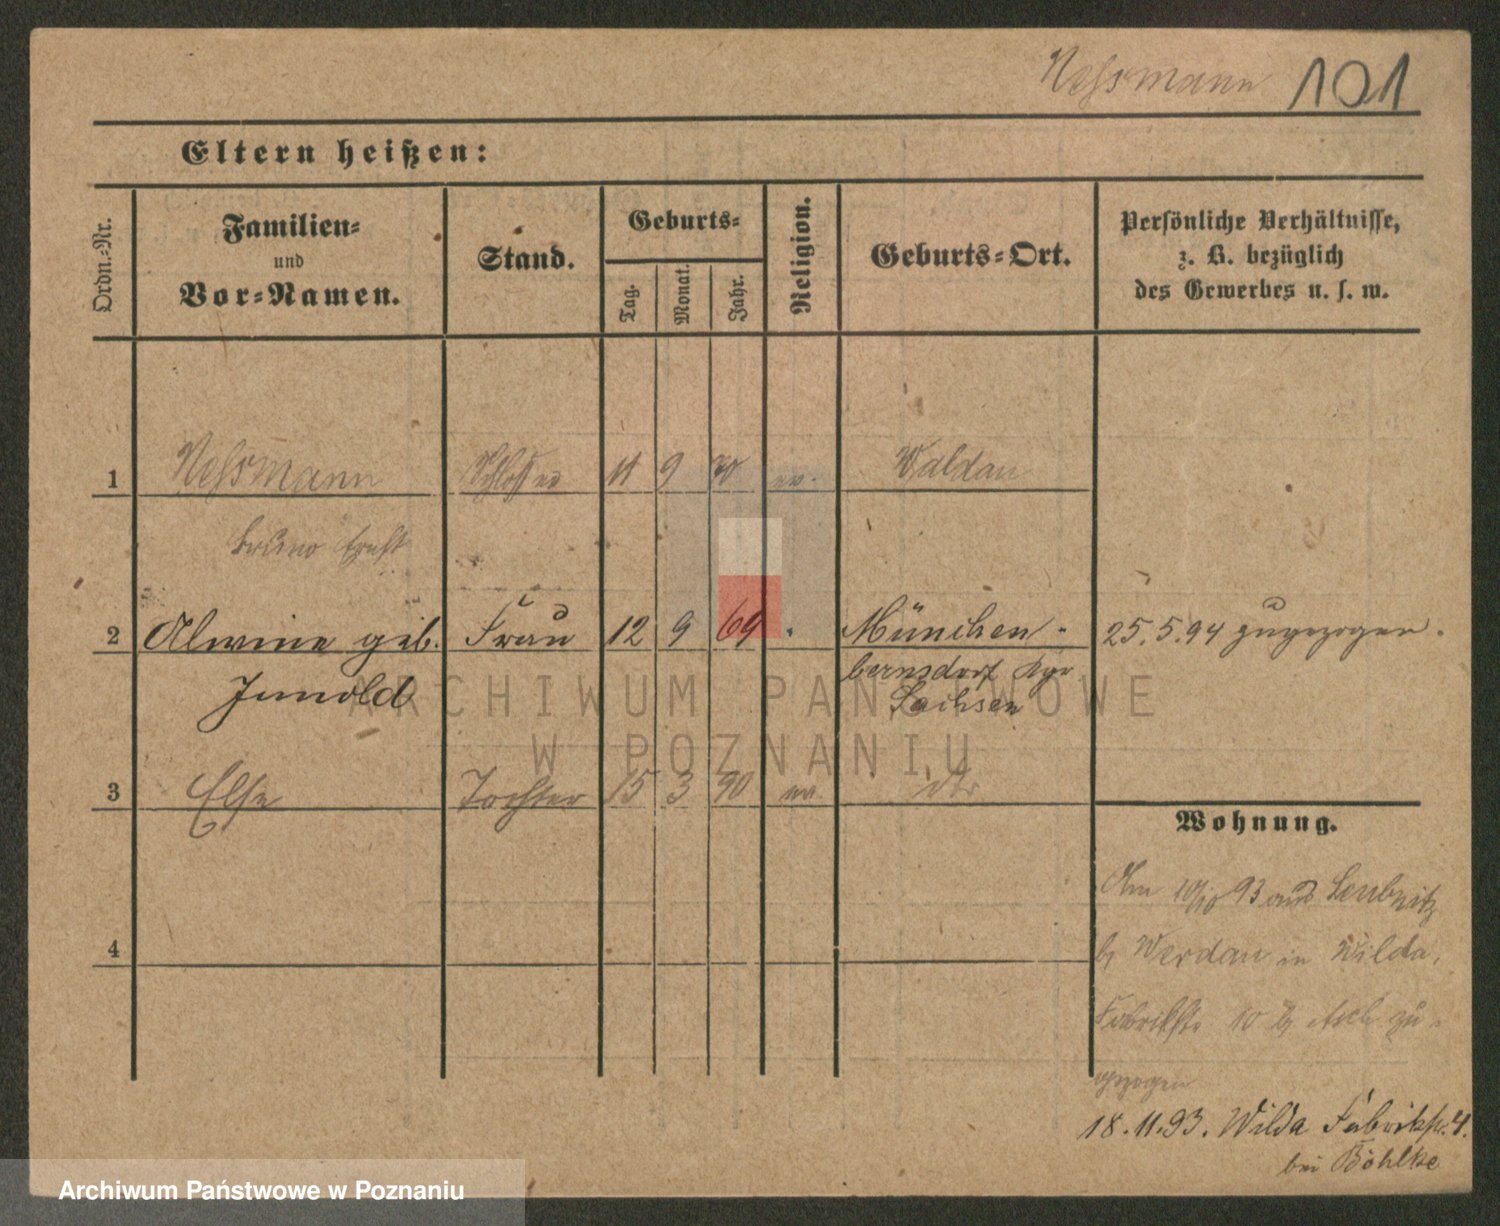 Nehrmann 101
Eltern heißen:
Ordn.-Nr.
Familien-
und
Vor-Namen.
Stand.
Geburts-
Tag.
Monat.
Jahr.
Religion.
Geburts-Ort.
Persönliche Verhältnisse,
z. B. bezüglich
des Gewerbes u. s. w.
1 Nehrmann Schlosser 11 9 70 ev. Waldau
Bruno Ernst
2 Alwine geb. Frau 12 9 69 " München- 25.5.94 zugezogen.
Junold bernsdorf Kgr
Sachsen
ARCHIWUM PAŃSTWOWE
W POZNANIU
3 Else Tochter 15 3 90 ev. dto
Wohnung.
Am 10/10 93 aus Leubnitz
b/ Werdau in Wilda,
4
Fabrikstr 10 b/ zu-
gezogen
18.11.93. Wilda Fabrikstr. 4.
bei Böhlke
Archiwum Państwowe w Poznaniu